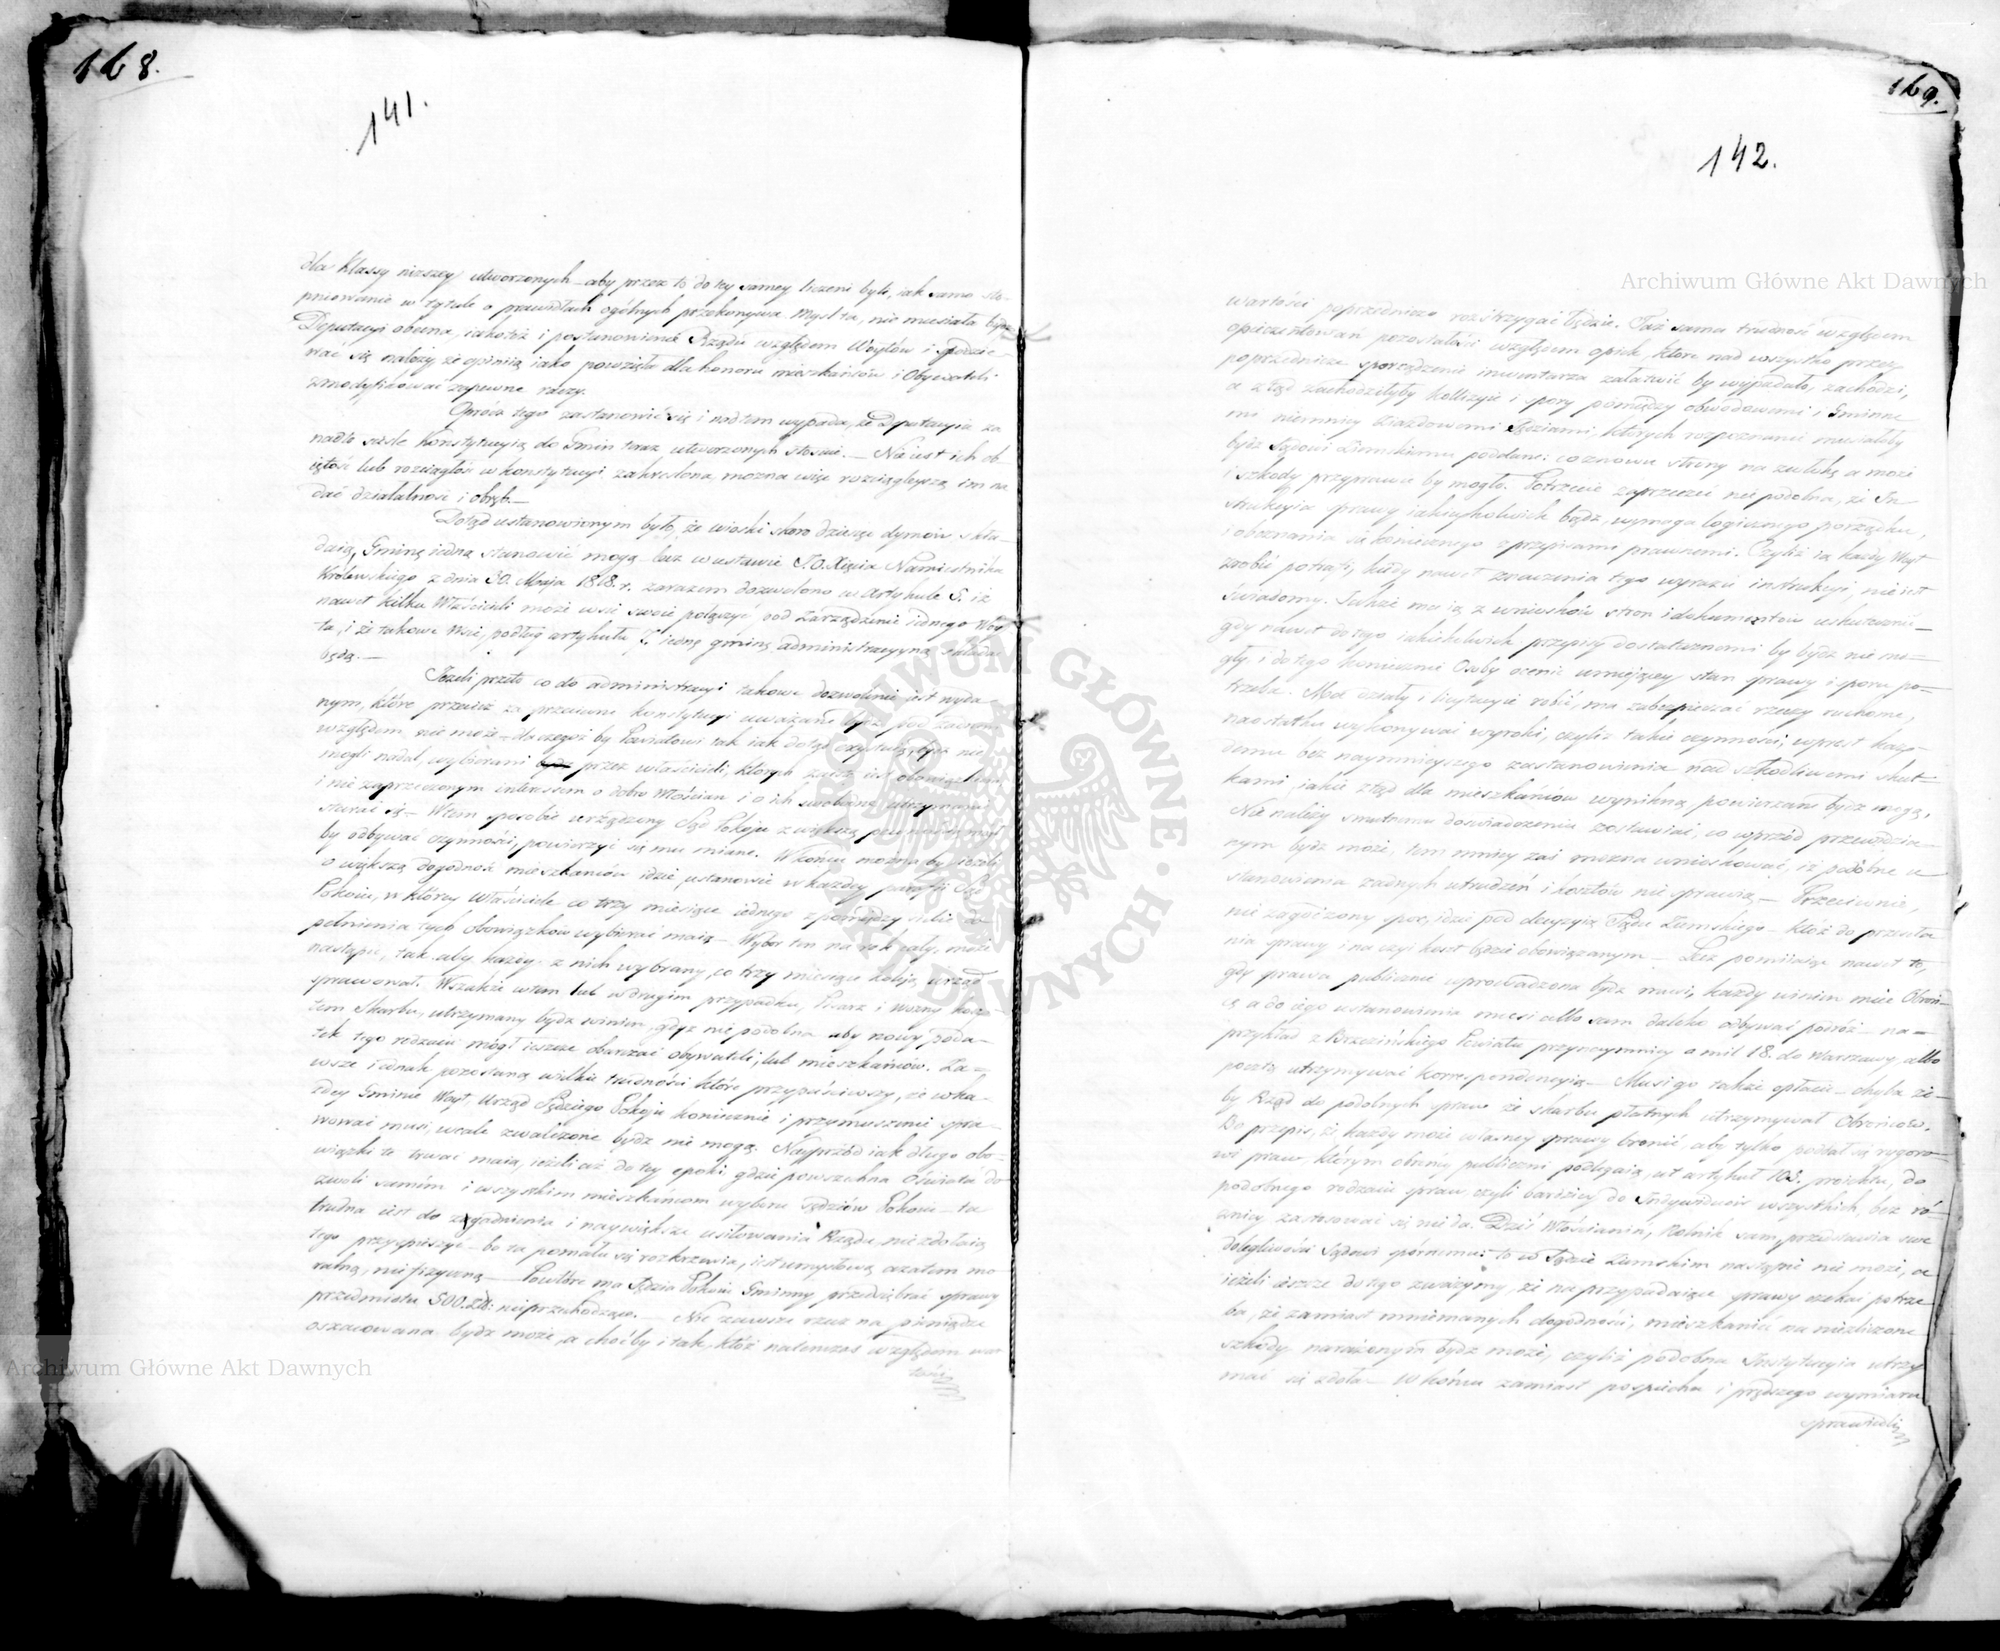 168.
141.
dla Klassy nizszey utworzonych – aby przez to do tey samey liczeni byli, iak samo sto-
pniowanie w tytule o prawidłach ogólnych przekonywa. Mysl ta, nie musiała bydz
Deputacyi obcena, iakoteż i postanowienie Rządu względem Woytów i spodzie-
wać się należy, że opiniią iako powzięta dla honoru mieszkańców i Obywateli
zmodyfikować zapewne raczy.
Oprócz tego zastanowić się i nad tem wypada, że Deputacyia za
nadto ściśle Konstytucyią do Gmin teraz utworzonych stosuie. – Nie iest ich ob-
iętość lub rozciągłość w konstytucyi zakreslona, można więc rozciągleyszą im na
dać działalność i obręb. –
Dotąd ustanowionym było, że wioski skoro dziesięć dymów skła-
daią, Gminę iedną stanowić mogą lecz w ustawie J. O. Xięcia Namiestnika
Królewskiego z dnia 30. Maja 1818. r. zarazem dozwolono w Artykule 5. iż
nawet kilku Właścicieli może wsie swoie połączyć pod Zarządzenie iednego Woy-
ta, i że takowe Wsie, podług artykułu 7. iedną gminę administracyyną składać
będą. –
Jeżeli przeto co do administracyi takowe dozwolenie iest wyda-
nym, które przecież za przeciwne konstytucyi uważane bydz pod żadnym
względem nie może – dla czegoż by Powiatowi tak iak dotąd exystuią, bydz nie
mogli nadal, wybierani przez właścicieli, których zawsze iest obowiązkiem,
i nie zaprzeczonym interessem o dobro Włościan i o ich swobodne utrzymanie
starać się – W tem sposobie urządzony Sąd Pokoju z większą pewnością mógł
by odbywać czynności, powierzyć się mu miane. W końcu można by, ieżeli
o większą dogodność mieszkańców idzie, ustanowić w każdey parafii Sąd
Pokoiu, w którey Właściciele co trzy miesiące iednego z pomiędzy siebie do
pełnienia tych obowiązków wybierać maią – Wybór ten na rok cały może
nastąpić, tak aby każdy z nich wybrany, co trzy miesiące koleją, urząd
sprawował. Wszakże w tem lub w drugim przypadku, Pisarz i Wozny kosz-
tem Skarbu, utrzymany bydz winien, gdyż nie podobna aby nowy poda-
tek tego rodzaiu mógł ieszcze obarczać obywateli, lub mieszkańców. Za-
wsze iednak pozostaną wielkie trudności które przypuściwszy, że w ka-
żdey Gminie Woyt, Urząd Sędziego Pokoju koniecznie i przymuszenie spra-
wować musi, wcale zwalczone bydz nie mogą. Nayprzód iak długo obo-
wiązki te trwać maią, ieżeli aż do tey epoki, gdzie powszechna Oświata do
zwoli samym i wszystkim mieszkańcom wyboru Sędziów Pokoiu – ta
trudna iest do zgadnienia i naywiększe usiłowania Rządu, nie zdołaią
tego przyspieszyć – bo ta pomału się rozkrzewia, iest umysłową a zatem mo
ralną, nie fizyczną – Powtóre ma Sędzia Pokoiu Gminny przedsiębrać sprawy
przedmiotu 500. złł. nieprzechodzące. – Nie zawsze rzecz na pieniądze
oszacowana bydz może, a choćby i tak, któż natenczas względem war
tości
169.
142.
wartości poprzedniczo rozstrzygać będzie. Taż sama trudność względem
opieczętowań pozostałości względem opiek, które nad wszystko przez
poprzednicze sporządzenie inwentarza załatwić by wypadało, zachodzi,
a ztąd zachodziłyby kollizyie i spory pomiędzy obwodowemi, Gminne
mi niemniey Ziazdowemi Sędziami, których rozpoznanie musiałoby
bydz Sądowi Ziemskiemu poddane: co znowu strony na zwłokę a może
i szkody przyprawić by mogło. Potrzecie zaprzeczyć nie podobna, że In
strukcyia sprawy iakieykolwiek bądź, wymaga logicznego porządku,
i obeznania się koniecznego z przepisami prawnemi. Czyliż ia każdy Woyt
zrobić potrafi, kiedy nawet znaczenia tego wyrazu instrukcyi, nie iest
świadomy. Jakże ma ią z wniosków stron i dokumentów uskutecznić –
gdy nawet do tego iakiekolwiek przepisy dostatecznemi by bydz nie mo-
gły, i do tego koniecznie Osoby ocenić umieiącey stan sprawy i sporu po-
trzeba. Ma działy i licytacyie robić, ma zabezpieczać rzeczy ruchome,
naostatku wykonywać wyroki, czyliż takie czynności, wprost każ-
demu bez naymnieyszego zastanowienia nad szkodliwemi skut-
kami, iakie ztąd dla mieszkańców wynikną powierzane bydz mogą.
Nie należy smutnemu doswiadczeniu zostawiać, co wprzód przewidzia-
nym bydz może, tem mniey zaś można wnioskować, iż podobne u
stanowienia żadnych utrudzeń i kosztów nie sprawią – Przeciwnie,
nie zagodzony spor, idzie pod decyzyią Sądu Ziemskiego – Któż do przesła
nia sprawy i na czyi koszt będzie obowiązanym – Lecz pomiiaiąc nawet to,
gdy sprawa publicznie wprowadzona bydz musi, każdy winien mieć Obroń-
cę a do iego ustanowienia musi albo sam daleko odbywać podróż – na-
przykład z Brzezińskiego Powiatu przynaymniey o mil 18. do Warszawy, albo
pocztą utrzymywać korrespondencyią – Musi go także opłacić – chyba że-
by Rząd do podobnych spraw że skarbu płatnych utrzymywał Obrońców.
Bo przepis, iż każdy może własney sprawy bronić, aby tylko poddał się rygoro-
wi praw, którym obrońcy publiczni podlegaią, ut artykuł 103. proiektu, do
podobnego rodzaiu spraw czyli bardziey do Indywiduów wszystkich, bez ró-
żnicy zastosować się nie da. Dziś Włościanin, Rolnik sam, przedstawia swe
dolegliwości Sądowi spornemu: to w Sądzie Ziemskim nastąpić nie może, a
ieżeli ieszcze do tego zważymy, że na przypadaiące sprawy czekać potrze
ba, że zamiast mniemanych dogodności, mieszkaniec na niezliczone
szkody narażonym bydz może, czyliż podobna Instytucyia utrzy
mać się zdoła – W końcu zamiast pospiechu i prędszego wymiaru
sprawiedli
Archiwum Główne Akt Dawnych
Archiwum Główne Akt Dawnych
ARCHIWUM GŁÓWNE AKT DAWNYCH